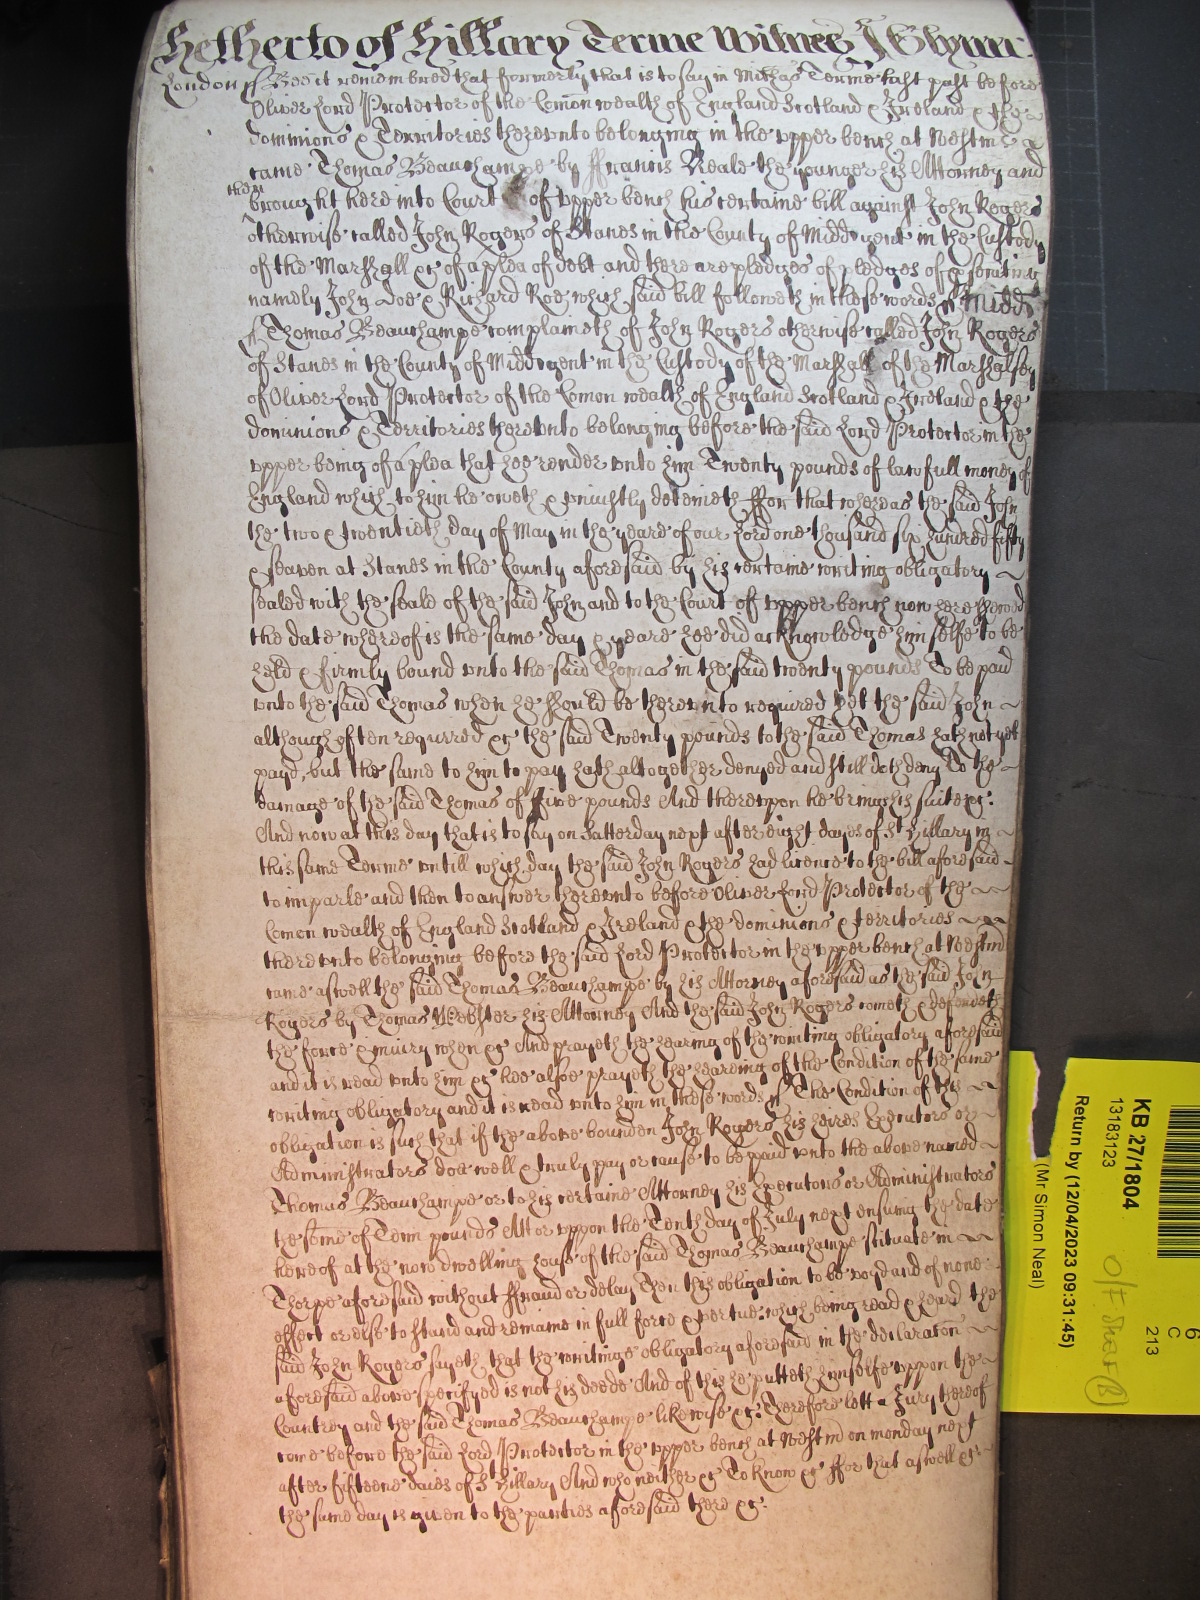 Hetherto of Hillary Terme Witnes J Glynn
London ss Bee it remembred that formerly that is to say in Michas Terme last past before
Oliver Lord Protector of the Comon wealth of England Scotland & Ireland & the
dominions & Territories thereunto belonging in the upper bench at Westm
came Thomas Beauchampe by ffrancis Neale the younger his Attorney and
then
brought here into Court of upper bench his certaine bill against John Rogers
otherwise called John Rogers of Stanes in the County of Midd gent in the Custody
of the Marshall &c of a plea of debt and there are pledges of pledges of prosecuting
namely John Doe & Richard Roe which said bill followeth in these words ss Midd
ss Thomas Beauchampe complaineth of John Rogers otherwise called John Rogers
of Stanes in the County of Midd gent in the Custody of the Marshall of the Marshalsey
of Oliver Lord Protector of the Comon wealth of England Scotland & Ireland & the
dominions & Territories thereunto belonging before the said Lord Protector in the
upper being of a plea that hee render unto him Twenty pounds of lawfull money of
England which to him he oweth & uniustly deteineth ffor that whereas the said John
the two & twentieth day of May in the yeare of our Lord one thousand six hundred fifty
& seaven at Stanes in the County aforesaid by his certaine writing obligatory
sealed with the seale of the said John and to the Court of upper bench now here shewed
the date whereof is the same day & yeare hee did acknowledge him selfe to be
held & firmly bound unto the said Thomas in the said twenty pounds To be paid
unto the said Thomas when he should be thereunto required Yet the said John
although often required &c the said Twenty pounds to the said Thomas hath not yet
payd, but the same to him to pay hath altogether denyed and still doth deny To the
damage of the said Thomas of ffive pounds And thereupon he brings his suite &c:
And now at this day that is to say on Satterday next after eight dayes of St Hillary in
this same Terme untill which day the said John Rogers had licence to the bill aforesaid
to imparle and then to answer thereunto before Oliver Lord Protector of the
Comon wealth of England Scotland & Ireland & the dominions & territories
thereunto belonging before the said Lord Protector in the upper bench at Westm
came aswell the said Thomas Beauchampe by his Attorney aforesaid as the said John
Rogers by Thomas Webster his Attorney And the said John Rogers cometh & defendeth
the force & iniury when &c And prayeth the hearing of the writing obligatory aforesaid
and it is read unto him &c hee alsoe prayeth the heareing of the Condition of the same
writing obligatory and it is read unto him in these words ss The Condition of this
obligation is such that if the above bounden John Rogers his heires Executors or
Administrators doe well & truly pay or cause to be paid unto the above named
Thomas Beauchampe or to his certaine Attorney his Executors or Administrators
the some of Tenn pounds Att or uppon the Tenth day of July next ensuing the date
hereof at the now dwelling house of the said Thomas Beauchampe scituate in
Thorpe aforesaid without ffraud or delay Then this obligation to be voyd and of none
effect or else to stand and remaine in full force & vertue: which being read & heard the
said John Rogers sayeth that the writinge obligatory aforesaid in the declaration
aforesaid above specifyed is not his deede And of this he putteth himselfe uppon the
Countrey and the said Thomas Beauchampe likewise &c: Therefore lett a Jury thereof
come before the said Lord Protector in the upper bench at Westm on monday next
after fifteene daies of St Hillary And who neither &c To know &c ffor that aswell &c
the same day is given to the parties aforesaid there &c:
KB 27/1804
13183123
Return by (12/04/2023 09:31:45)
(Mr Simon Neal)
6
C
213